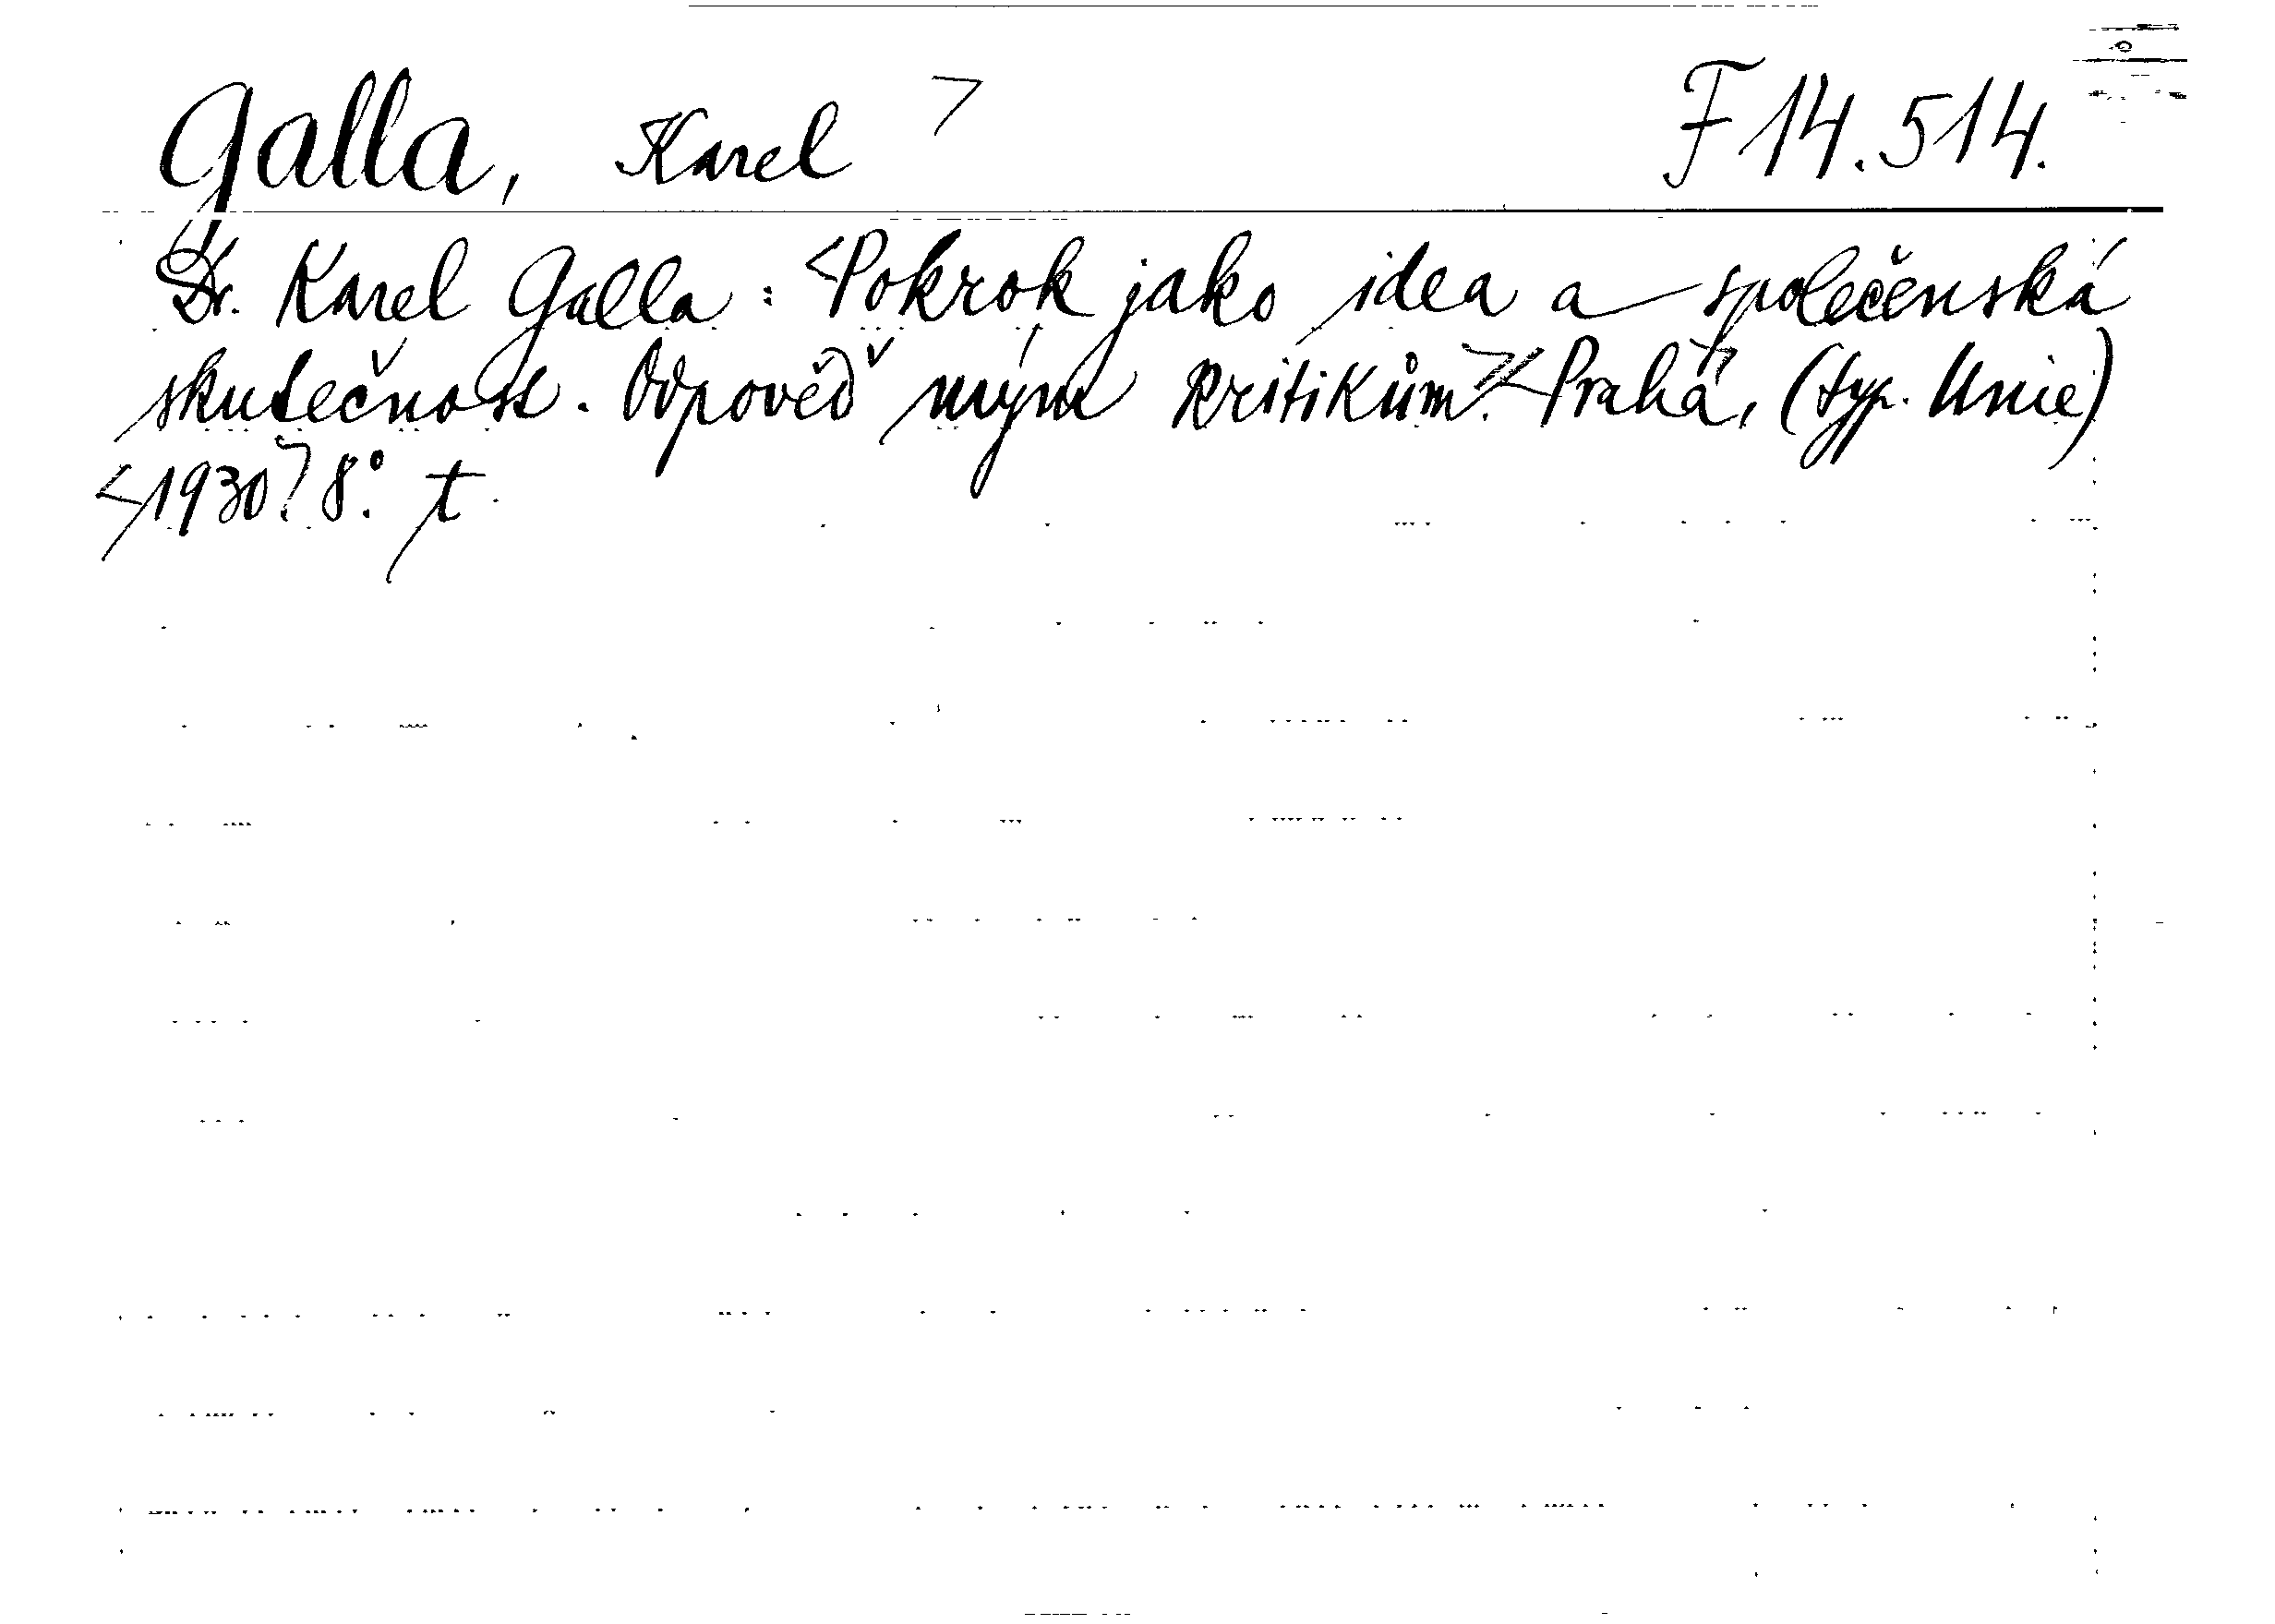 Galla, Karel > F 14.514.
Dr. Karel Galla: <Pokrok jako idea a společenská
skutečnost. Odpověď mým kritikům.> <Praha>, (typ. Unie)
<1930>. 8°. t.